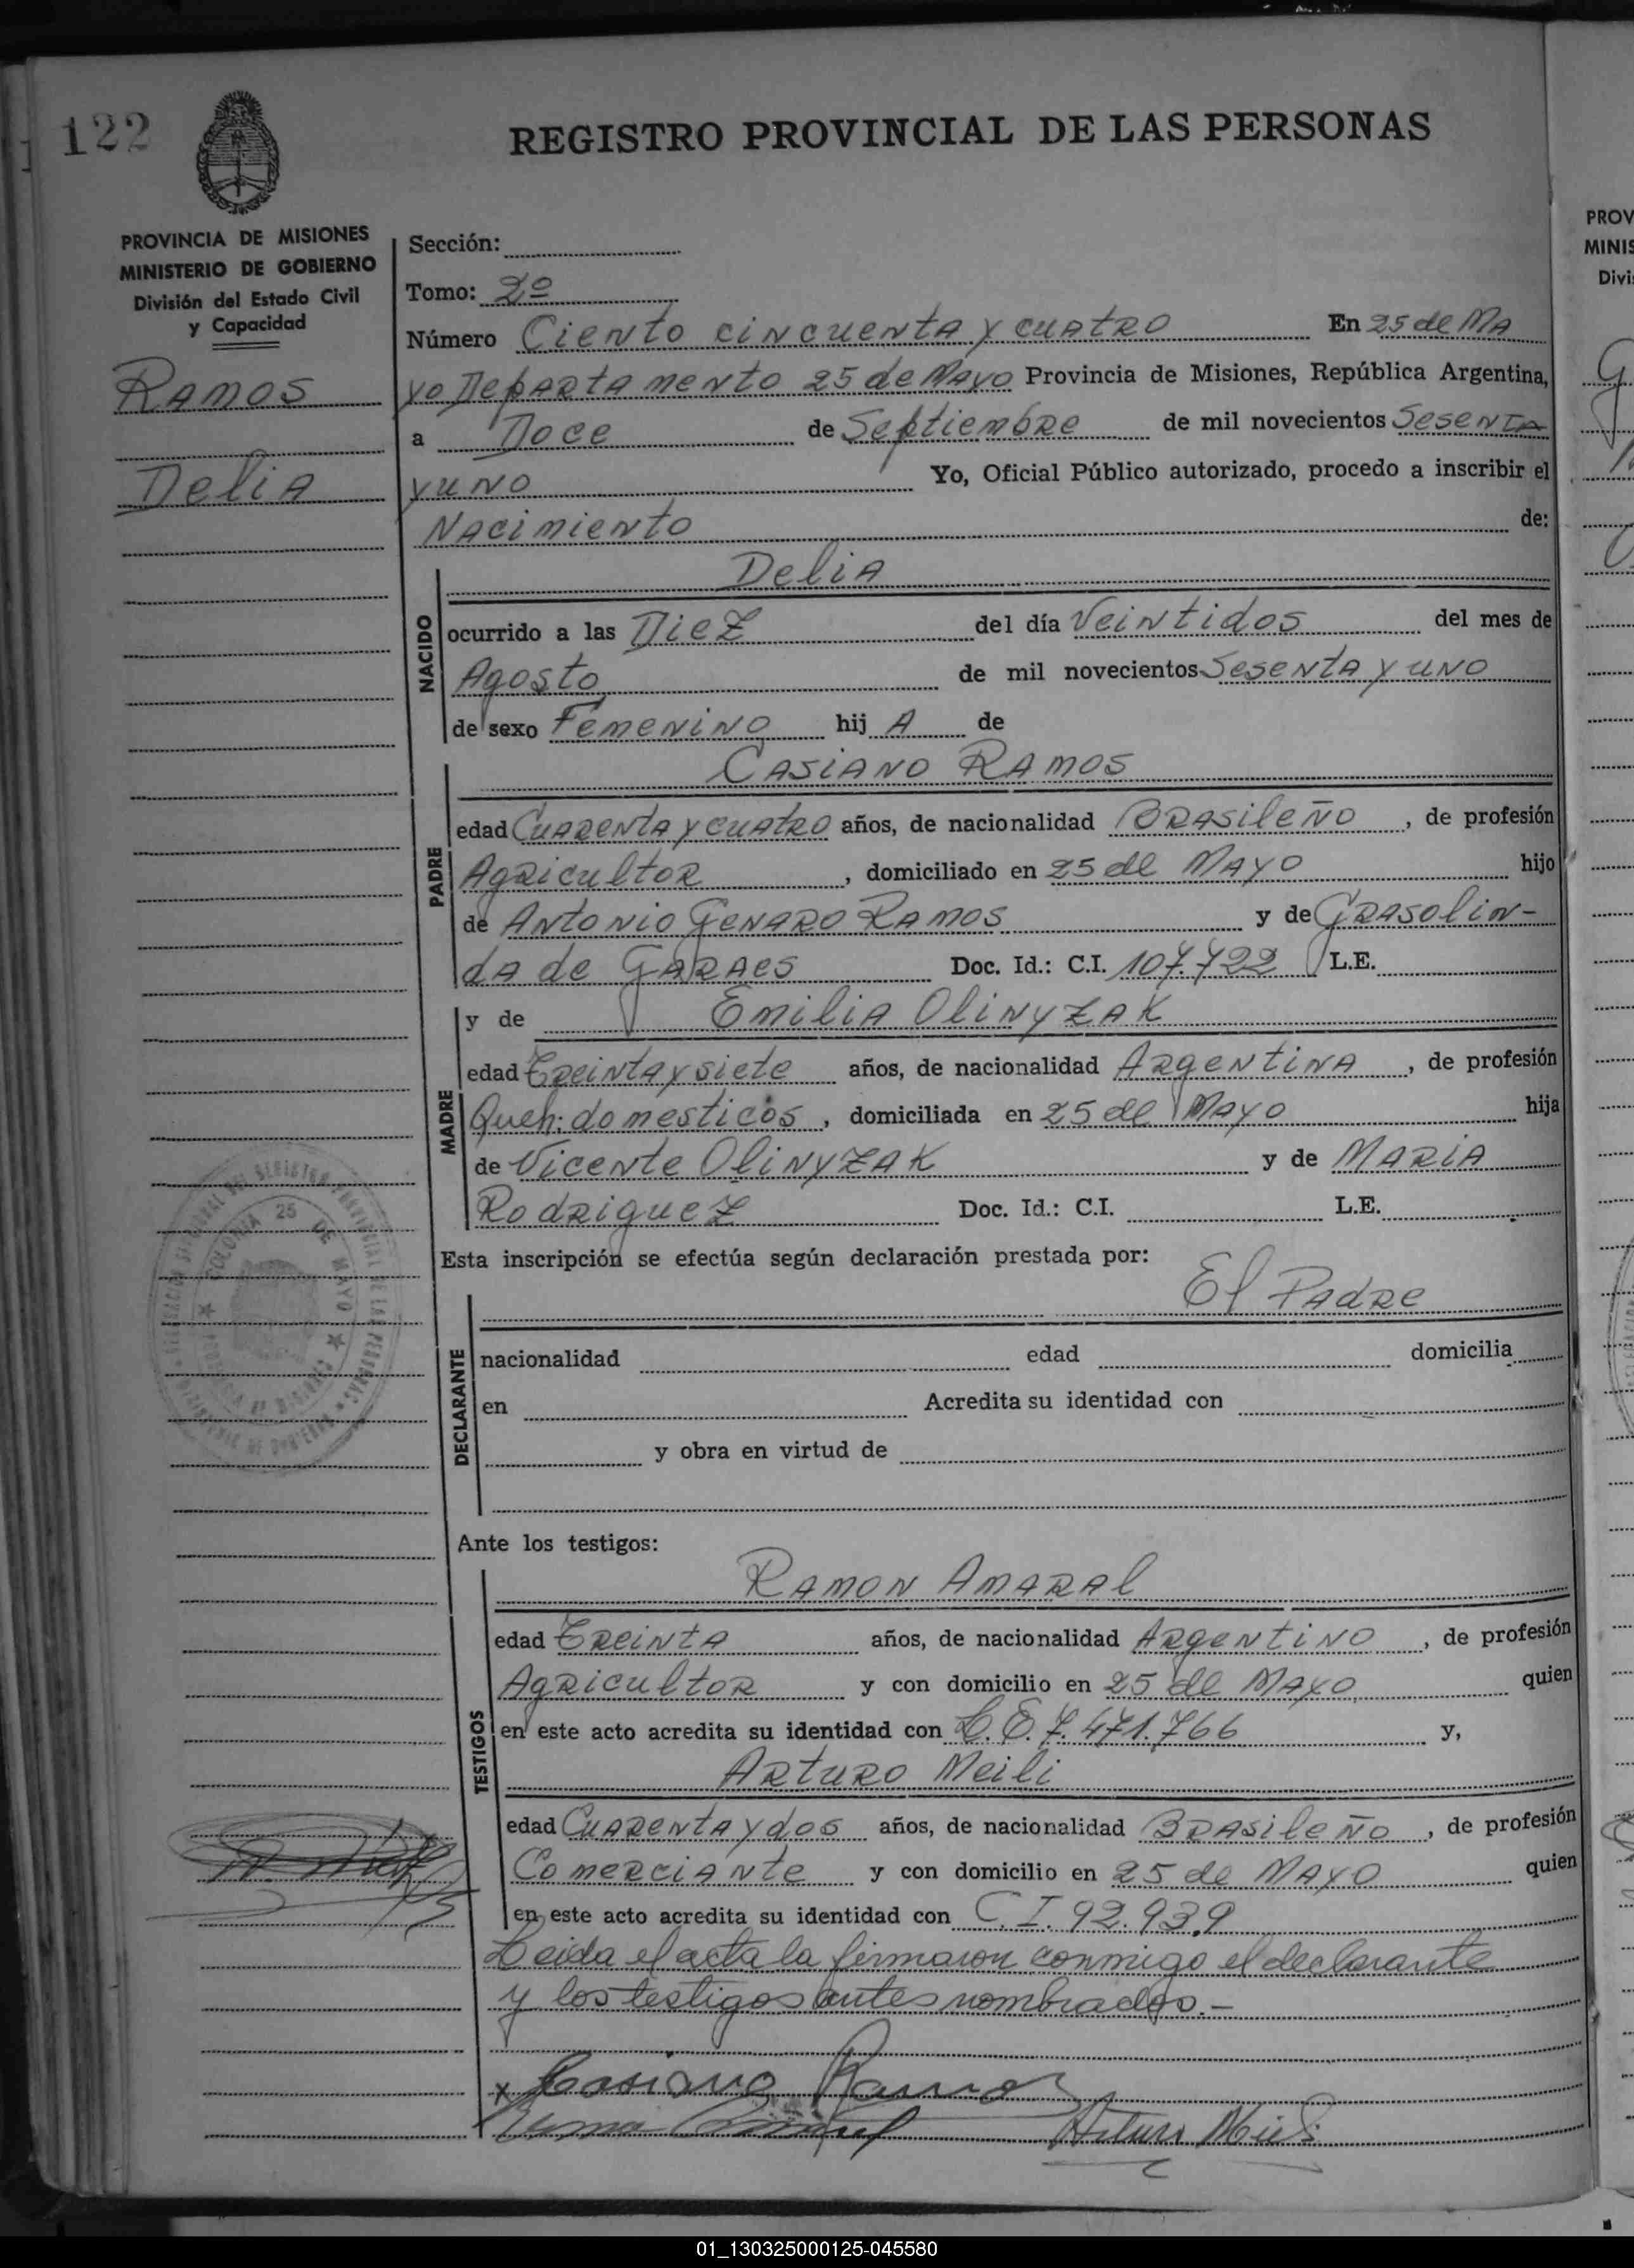 122
REGISTRO PROVINCIAL DE LAS PERSONAS
PROVINCIA DE MISIONES
MINISTERIO DE GOBIERNO
División del Estado Civil
y Capacidad
Ramos
Delia
Sección:
Tomo: 2º
Número Ciento cincuenta y cuatro En 25 de Ma
yo Departamento 25 de Mayo Provincia de Misiones, República Argentina,
a Doce de Septiembre de mil novecientos Sesenta
y uno Yo, Oficial Público autorizado, procedo a inscribir el
Nacimiento de:
NACIDO
Delia
ocurrido a las Diez del día Veintidos del mes de
Agosto de mil novecientos Sesenta y uno
de sexo Femenino hij A de
PADRE
Casiano Ramos
edad Cuarenta y cuatro años, de nacionalidad Brasileño, de profesión
Agricultor, domiciliado en 25 de Mayo hijo
de Antonio Genaro Ramos y de Grasolin-
da de Garaes Doc. Id.: C.I. 107.722 L.E.
MADRE
y de Emilia Olinyzak
edad Treinta y siete años, de nacionalidad Argentina, de profesión
Queh: domesticos, domiciliada en 25 de Mayo hija
de Vicente Olinyzak y de Maria
Rodriguez Doc. Id.: C.I. L.E.
Esta inscripción se efectúa según declaración prestada por:
El Padre
DECLARANTE
nacionalidad edad domicilia
en Acredita su identidad con
y obra en virtud de
COLONIA 25 DE MAYO
Ante los testigos:
TESTIGOS
Ramon Amaral
edad Treinta años, de nacionalidad Argentino, de profesión
Agricultor y con domicilio en 25 de Mayo quien
en este acto acredita su identidad con L.E. 7.471.766 y,
Arturo Meili
edad Cuarenta y dos años, de nacionalidad Brasileño, de profesión
Comerciante y con domicilio en 25 de Mayo quien
en este acto acredita su identidad con C.I. 92.939
Leida el acta la firmaron conmigo el declarante
y los testigos antes nombrados.-
x Casiano Ramos
Arturo Meili
PROV
MINIS
Divi
01_130325000125-045580